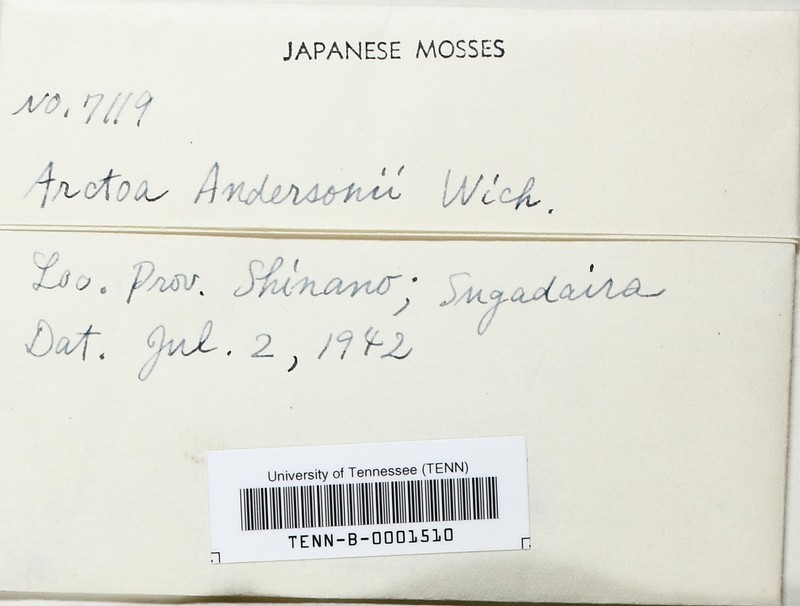 JAPANESE MOSSES
No. 7119
Arctoa Andersonii Wich.
Loc. Prov. Shinano; Sugadaira
Dat. Jul. 2, 1942
University of Tennessee (TENN)
TENN-B-0001510